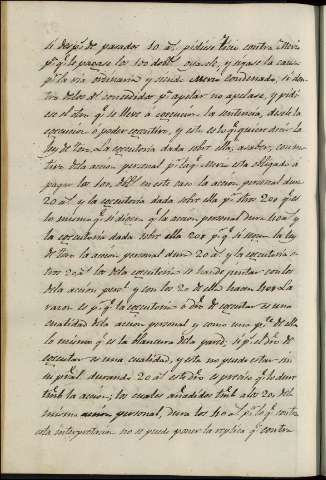 si desps. de pasados 10 as. pidiese Ticio contra Mevio
pa. q. le pagase los 100 dobls. y sigase la causa
pr. la via ordinaria y siendo Mevio condenado, si den
tro de los ds. concedidos pa. apelar no apelase, y pidi
ese el actor q. se lleve á execucion la sentencia, desde la
execucion o poder executivo, y esto es lo q. quiere decir la
ley de Toro. La executoria dada sobre ella, acabar, con mo
tivo de la accion personal pr. la q. Mevio esta obligado á
pagar los 100 dobls. en este caso la accion personal dura
20 as. y la executoria dada sobre ella pr. otros 20 q. es
lo mismo q. si dicen q. la accion personal dura 20 as. y
la executoria dada sobre ella 20 pr. q. si segun la ley
de Toro la accion personal dura 20 as. y la executoria o
tros 20 as. los de la executoria se han de juntar con los
de la accion persl. y son los 20 de ella hacen 40. La
razon es pr. q. la executoria ó dro. de executar es una
cualidad de la accion personal y como una pte. de ella
lo mismo q. es la blancura de la pared; si pr. el dro. de
executar es una cualidad, y esta no puede estar sin
su pral. durando 20 as. este dro. es preciso q. lo dure
tambn. la accion; los cuales añadidos tambn. a los 20 de la
misma accion personal, dura los 40 as. pr. lo q. contra
esta interpretacion no se puede poner la replica q. contra